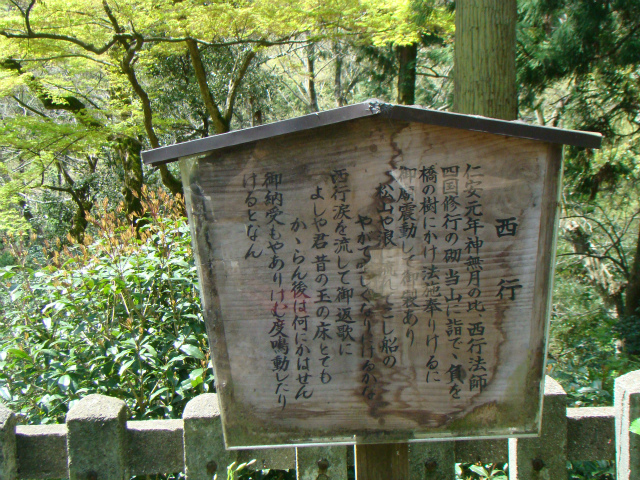 西行
仁安元年神無月の比 西行法師
四国修行の砌当山に詣で、負を
橋の樹にかけ法施奉りけるに
御廟震動して御製あり
松山の浪に流れてこし船の
やがてむなしくなりにけるかな
西行涙を流して御返歌に
よしや君 昔の玉の床とても
かゝらん後は何にかはせん
御納受もやありけむ度々鳴動したり
けるとなん